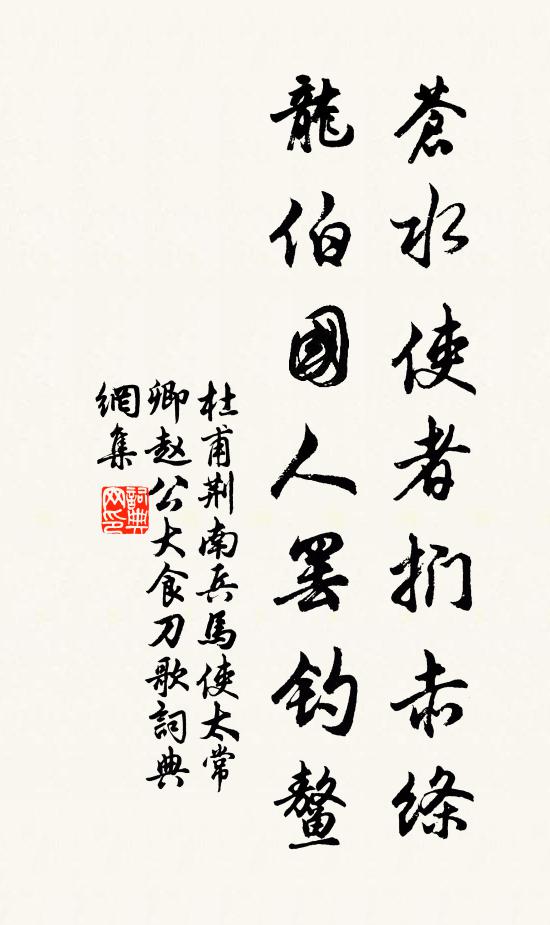 蒼水使者捫赤絛
龍伯國人罷釣鰲
杜甫荆南兵馬使太常
卿赵公大食刀歌詞典
網集
詞典
网印